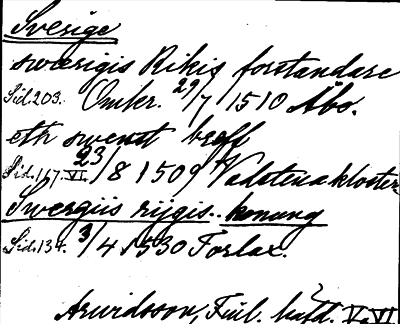 Sverige
swerigis Rikis forstandare
Sid. 203. Omkr. 29/7 1510 Åbo.
eth swenst breff
Sid. 167. VI. 23/8 1509 Vadstena kloster
Swergiis rijgis.. konung
Sid. 134. 3/4 1530 Forlax.
Arwidsson, Finl. häfd. V. VI